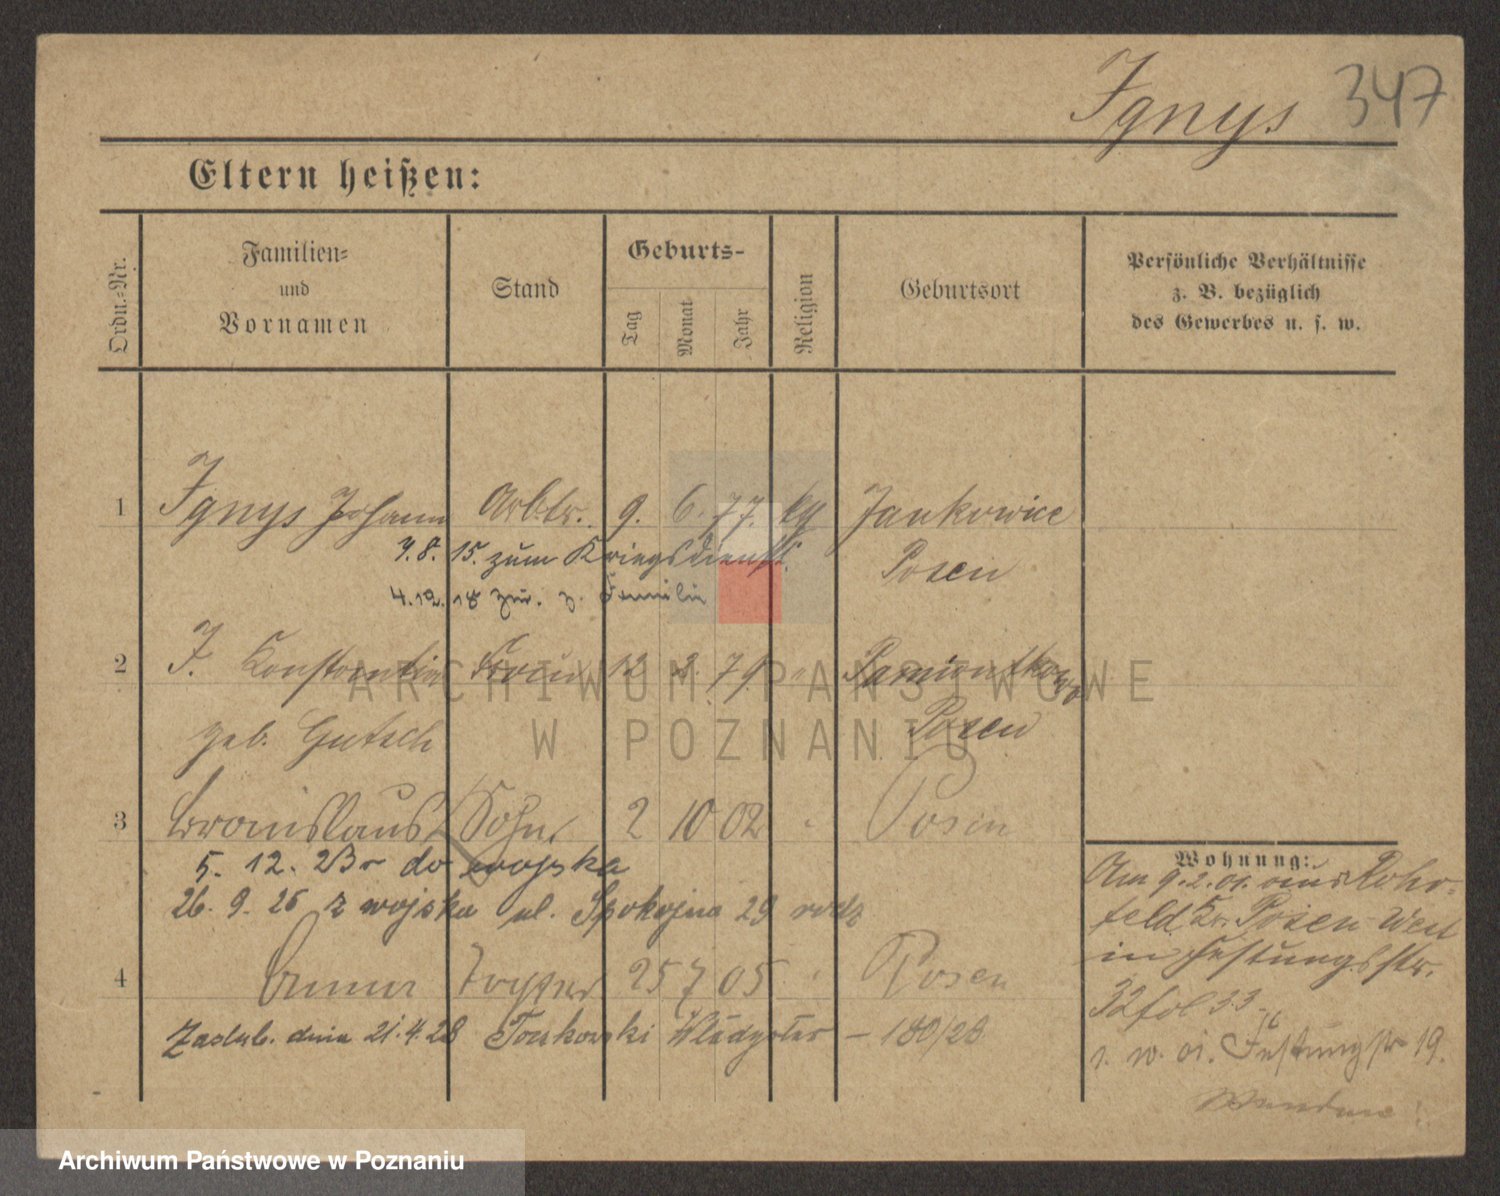 Ignys 347
Eltern heißen:
Ordn.-Nr.
Familien-
und
Vornamen
Stand
Geburts-
Tag
Monat
Jahr
Religion
Geburtsort
Persönliche Verhältnisse
z. B. bezüglich
des Gewerbes u. s. w.
1 Ignys Johann Arbtr. 9. 6. 77. kg Jankowice
7.8.15. zum Kriegsdienst. Posen
4.12.18 zur. z. Familie
2 I. Konstantia Frau 12 2. 79. " Pamiontkowo
geb. Gutsch Posen
3 Bronislaus Sohn 2 10 02 " Posen
5. 12. 23 r do wojska
26. 9. 25 z wojska ul. Spokojna 29 rodz
4 Anna Tochter 25 7 05 " Posen
Zaślub. dnia 21.4.28 Władysław – 180/28
Wohnung:
Am 9.2.01. aus Rohr-
feld, Kr. Posen-West
in Festungsstr.
32 fol 33
Festungstr 19.
ARCHIWUM PAŃSTWOWE
W POZNANIU
Archiwum Państwowe w Poznaniu